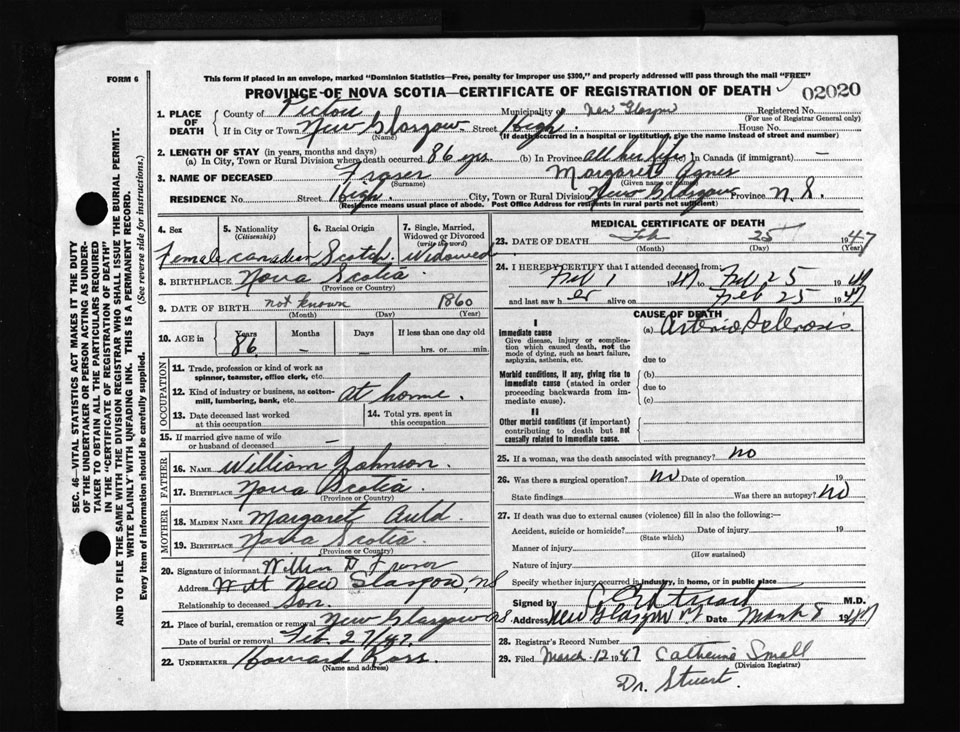 FORM 6
This form if placed in an envelope, marked "Dominion Statistics—Free, penalty for improper use $300," and properly addressed will pass through the mail "FREE"
PROVINCE OF NOVA SCOTIA—CERTIFICATE OF REGISTRATION OF DEATH
02020
SEC. 46—VITAL STATISTICS ACT MAKES IT THE DUTY
OF THE UNDERTAKER OR PERSON ACTING AS UNDER-
TAKER TO OBTAIN ALL THE PARTICULARS REQUIRED
IN THE "CERTIFICATE OF REGISTRATION OF DEATH"
AND TO FILE THE SAME WITH THE DIVISION REGISTRAR WHO SHALL ISSUE THE BURIAL PERMIT.
WRITE PLAINLY WITH UNFADING INK. THIS IS A PERMANENT RECORD.
Every item of information should be carefully supplied. (See reverse side for instructions.)
1. PLACE OF DEATH
County of Pictou Municipality of New Glasgow Registered No.
(For use of Registrar General only)
If in City or Town New Glasgow. Street High. House No.
(Name) (If death occurred in a hospital or institution, give the name instead of street and number)
2. LENGTH OF STAY (in years, months and days)
(a) In City, Town or Rural Division where death occurred 86 yrs. (b) In Province all her life (c) In Canada (if immigrant) —
3. NAME OF DECEASED Fraser Margaret Agnes
(Surname) (Given name or names)
RESIDENCE No. Street High. City, Town or Rural Division New Glasgow Province N.S.
(Residence means usual place of abode. Post Office Address for residents in rural parts not sufficient)
4. Sex 5. Nationality (Citizenship) 6. Racial Origin 7. Single, Married, Widowed or Divorced (write the word)
Female Canadian Scotch. Widowed
8. BIRTHPLACE Nova Scotia.
(Province or Country)
9. DATE OF BIRTH not known 1860
(Month) (Day) (Year)
10. AGE in Years Months Days If less than one day old
86 — — hrs. or min.
OCCUPATION
11. Trade, profession or kind of work as spinner, teamster, office clerk, etc.
12. Kind of industry or business, as cotton-mill, lumbering, bank, etc. at home.
13. Date deceased last worked at this occupation
14. Total yrs. spent in this occupation
15. If married give name of wife or husband of deceased —
FATHER
16. NAME William Johnson.
17. BIRTHPLACE Nova Scotia.
(Province or Country)
MOTHER
18. MAIDEN NAME Margaret Auld.
19. BIRTHPLACE Nova Scotia.
(Province or Country)
20. Signature of informant William D Fraser
Address West New Glasgow, NS
Relationship to deceased Son.
21. Place of burial, cremation or removal New Glasgow NS
Date of burial or removal Feb. 27/47.
22. UNDERTAKER Howard Ross.
(Name and address)
MEDICAL CERTIFICATE OF DEATH
23. DATE OF DEATH Feb 25 1947
(Month) (Day) (Year)
24. I HEREBY CERTIFY that I attended deceased from:
Feb 1 1947 to Feb 25 1947
and last saw her alive on Feb 25 1947
CAUSE OF DEATH
I
Immediate cause
Give disease, injury or complication which caused death, not the mode of dying, such as heart failure, asphyxia, asthenia, etc.
(a) Arterio Sclerosis.
due to
Morbid conditions, if any, giving rise to immediate cause (stated in order proceeding backwards from immediate cause).
(b)
due to
(c)
II
Other morbid conditions (if important) contributing to death but not causally related to immediate cause.
25. If a woman, was the death associated with pregnancy? no
26. Was there a surgical operation? no Date of operation 19
State findings Was there an autopsy? no
27. If death was due to external causes (violence) fill in also the following:—
Accident, suicide or homicide? Date of injury 19
(State which)
Manner of injury
(How sustained)
Nature of injury
Specify whether injury occurred in industry, in home, or in public place
Signed by Stuart M.D.
Address New Glasgow Date March 8 1947
28. Registrar's Record Number
29. Filed March-12 1947 Catherine Small
(Division Registrar)
Dr. Stuart.